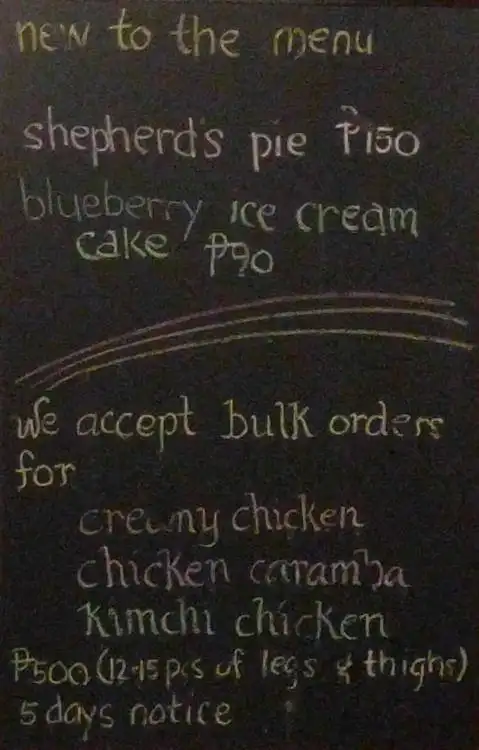 new to the menu
shepherd's pie ₱150
blueberry ice cream
cake ₱90
We accept bulk orders
for
creamy chicken
chicken caramba
kimchi chicken
₱500 (12-15 pcs of legs & thighs)
5 days notice